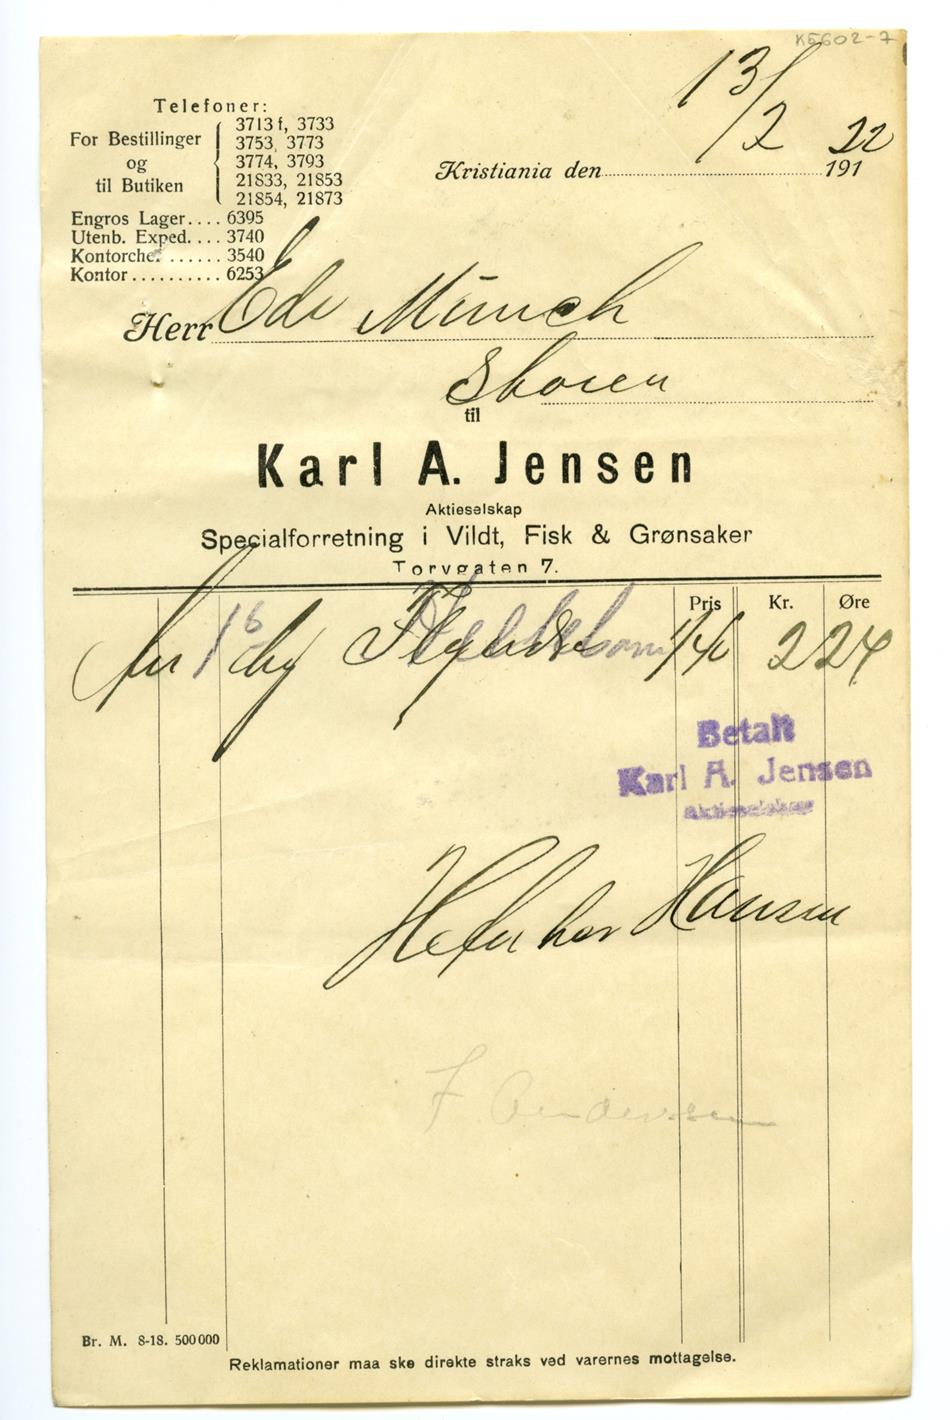 K5602-7
Telefoner:
For Bestillinger og til Butiken
3713 f, 3733
3753, 3773
3774, 3793
21833, 21853
21854, 21873
Engros Lager.... 6395
Utenb. Exped.... 3740
Kontorchef ...... 3540
Kontor .......... 6253
13/2 22
Kristiania den 191
Herr Edv Münch
Skøien
til
Karl A. Jensen
Aktieselskap
Specialforretning i Vildt, Fisk & Grønsaker
Torvgaten 7.
Pris Kr. Øre
1 6 kg 1/40 2 24
Betalt
Karl A. Jensen
Aktieselskap
Hansen
F Andersen
Br. M. 8-18. 500 000
Reklamationer maa ske direkte straks ved varernes mottagelse.